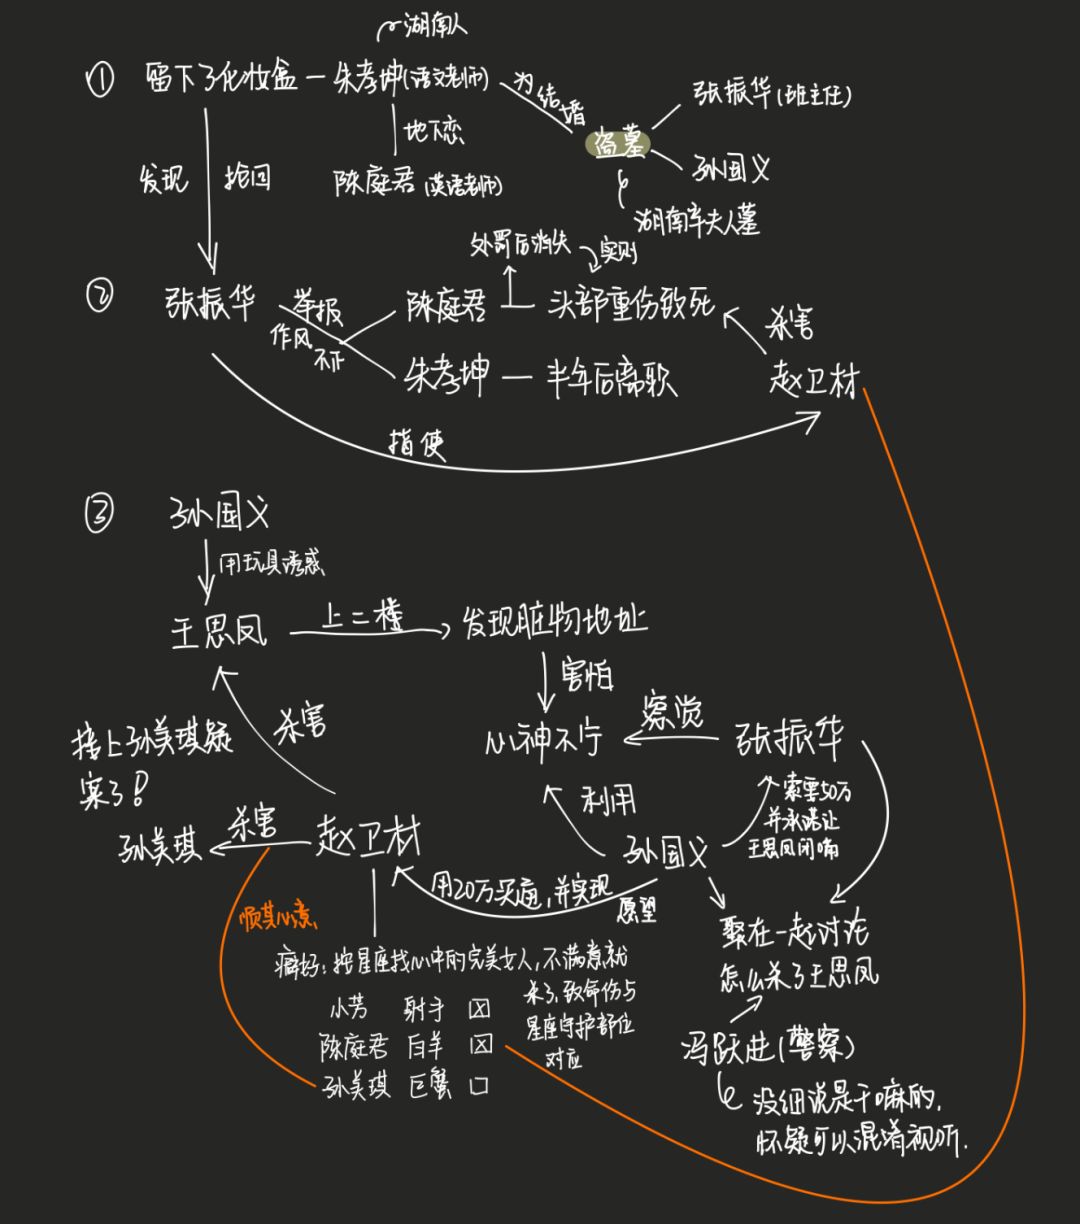 湖南人
① 留下了化妆盒 — 朱孝坤(语文老师)
为结婚
张振华(班主任)
盗墓
地下恋
孙国义
发现 抢回
陈庭君(英语老师)
湖南辛夫人墓
处罚后消失
实则
② 张振华
举报
作风
不正
陈庭君 — 头部重伤致死
杀害
朱孝坤 — 半年后离职
赵卫材
指使
③ 孙国义
用玩具诱惑
王思凤
上二楼
发现脏物地址
害怕
杀害
接上孙美琪疑
案了!
心神不宁
察觉
张振华
利用
索要50万
并承诺让
王思凤闭嘴
孙美琪
杀害
赵卫材
孙国义
用20万买通,并实现
愿望
顺其心意
聚在一起讨论
怎么杀了王思凤
癖好:按星座找心中的完美女人,不满意就
杀了,致命伤与
星座守护部位
对应
小芳 射手 ☒
陈庭君 白羊 ☒
孙美琪 巨蟹 □
冯跃进(警察)
没细说是干嘛的,
怀疑可以混淆视听.